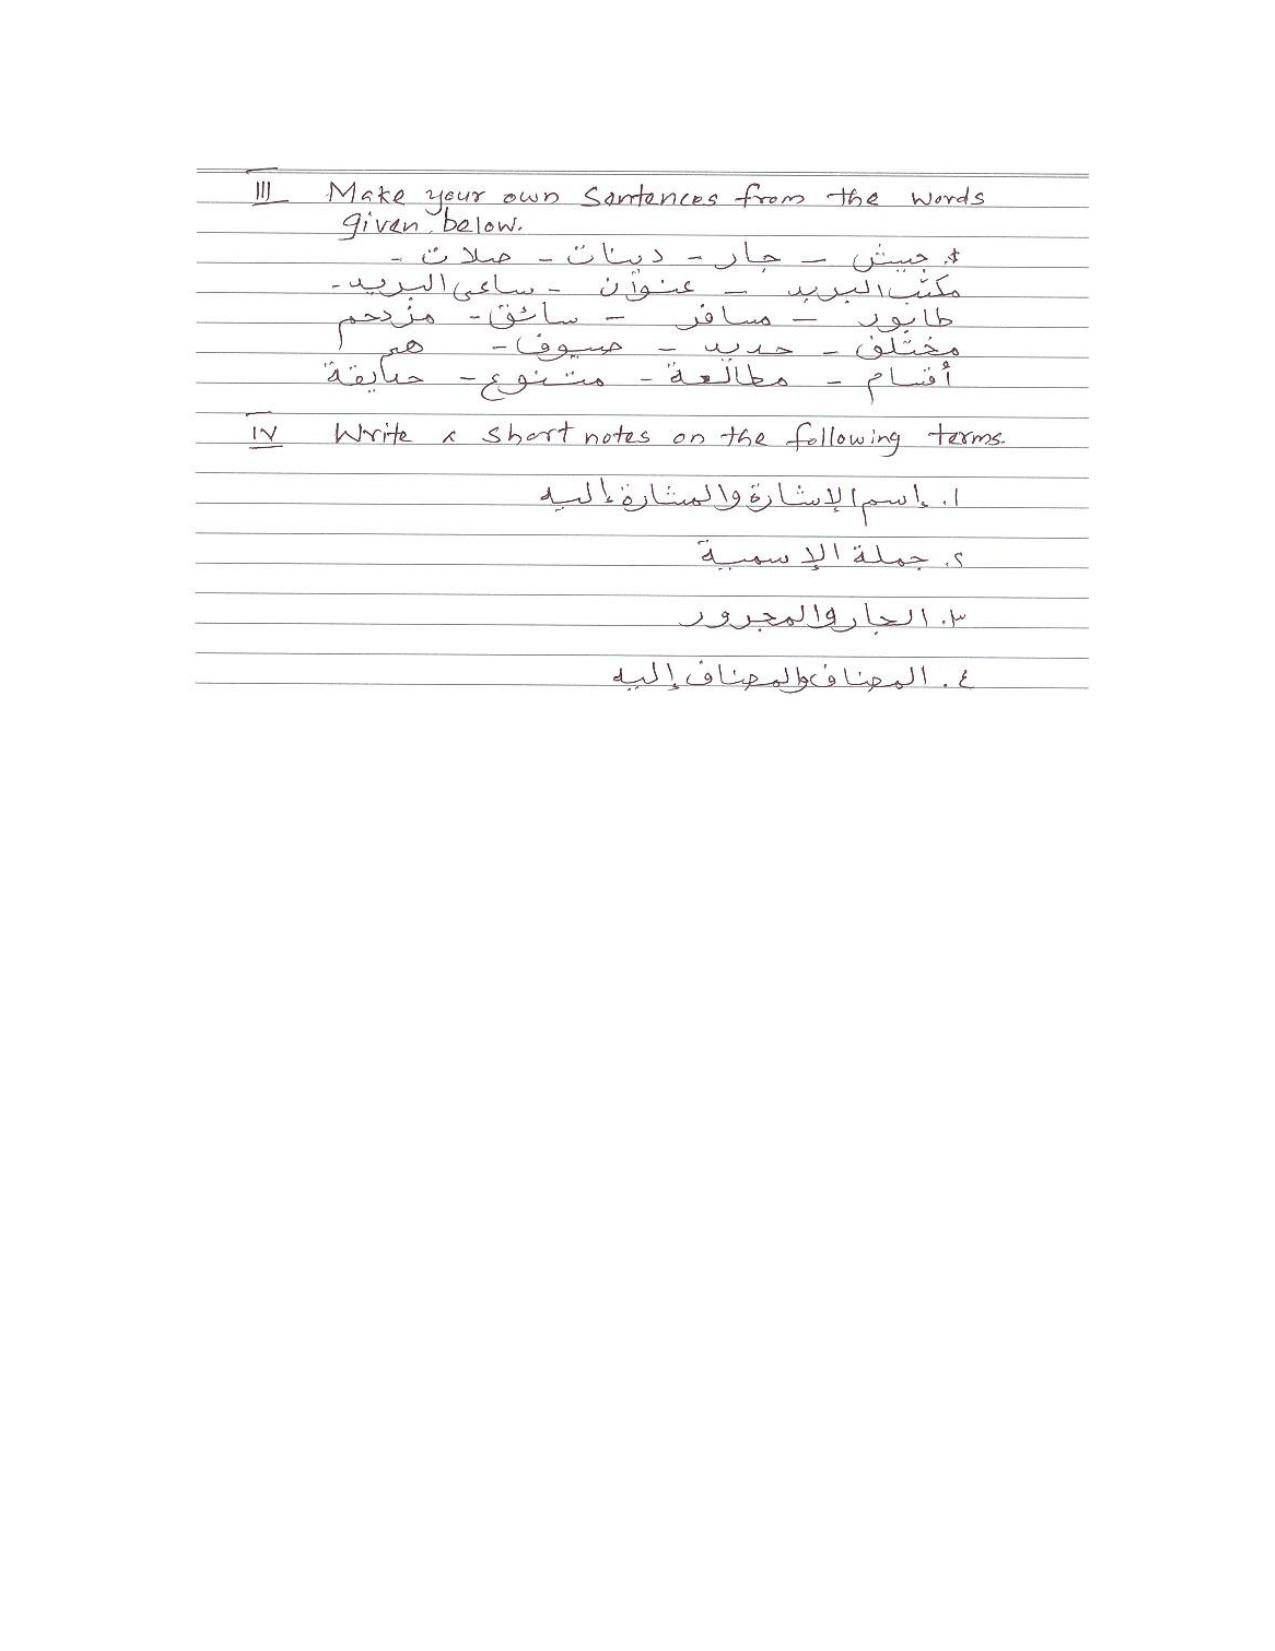 III Make your own Sentences from the words
given below.
* جيش – جار – دينات – صلات –
مكتب البريد – عنوان – ساعى البريد –
طابور – مسافر – سائق – مزدحم
مختلف – حديد – صيوف – هم
أقسام – مطالعة – متنوع –
IV Write short notes on the following terms.
١. إسم الإشارة والمشارة إليه
٢. جملة الإسمية
٣. الجار والمجرور
٤. المضاف والمضاف إليه